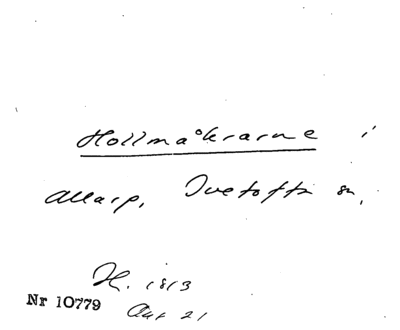 Hollmåkrarne i
Allarp, Ivetofta sn,
H. 1813
Nr 10779
Akt 21